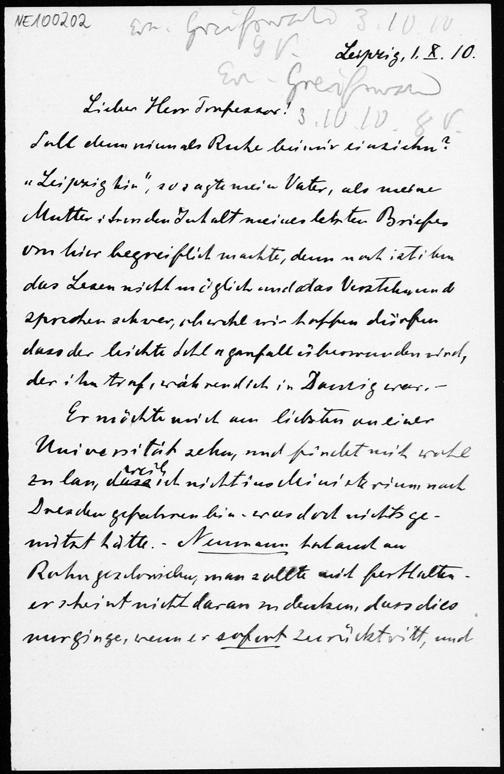 NE100202
Erh. Greifswald 3.10.10
8V.
Leipzig, 1. X. 10.
Erh. Greifswald
Lieber Herr Professor!
3.10.10. 8V.
Soll denn niemals Ruhe bei mir einziehn?
"Leipzig hin", so sagte mein Vater, als meine
Mutter ihm den Inhalt meines letzten Briefes
von hier begreiflich machte, denn noch ist ihm
das Lesen nicht möglich und das Verstehn und
sprechen schwer, obwohl wir hoffen dürfen
dass der leichte Schlaganfall überwunden wird,
der ihn traf, während ich in Danzig war. –
Er möchte mich am liebsten an einer
Universität sehn, und findet mich wohl
zu lau, weil ich nicht ins Ministerium nach
Dresden gefahren bin – was doch nichts ge-
nützt hätte. – Neumann hat auch an
Rohn geschrieben, man sollte mich festhalten –
er scheint nicht daran zu denken, dass dies
nur ginge, wenn er sofort zurücktritt, und